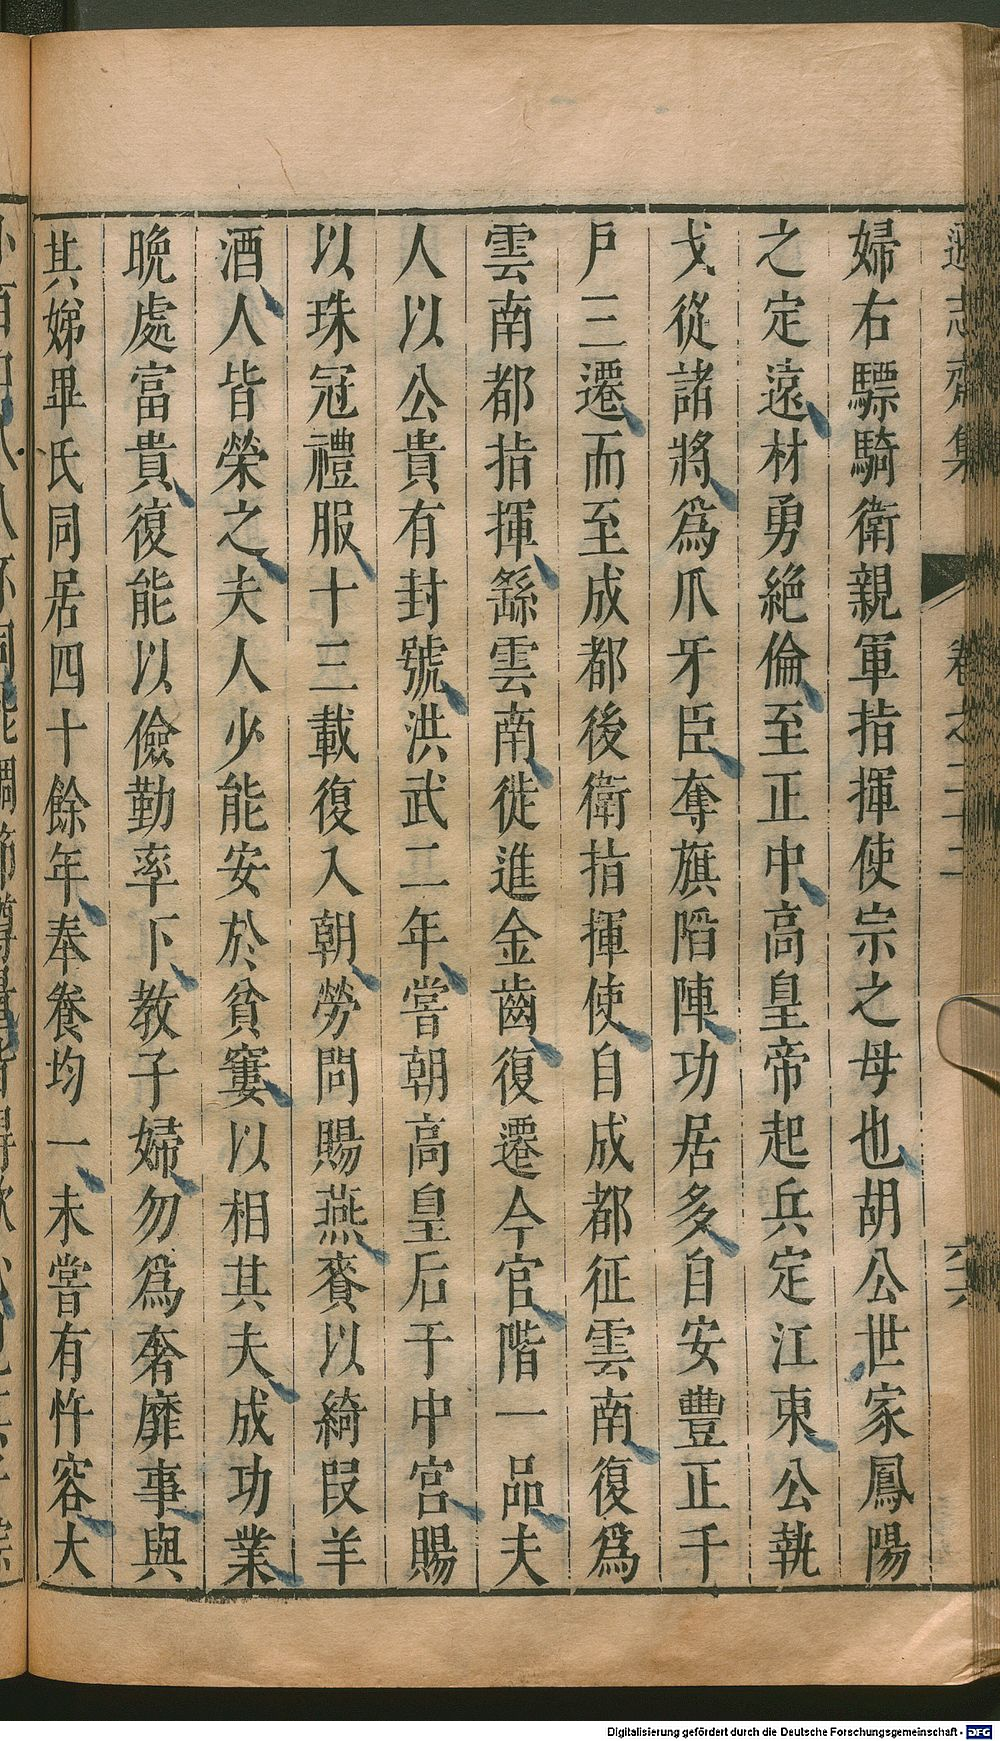 遜志齋集 卷之二十二
婦右驃騎衛親軍指揮使宗之母也胡公世家鳳陽
之定遠材勇絶倫至正中高皇帝起兵定江東公執
戈從諸將爲爪牙臣奪旗陷陣功居多自安豐正千
戶三遷而至成都後衛指揮使自成都征雲南復爲
雲南都指揮繇雲南徙進金齒復遷今官階一品夫
人以公貴有封號洪武二年嘗朝高皇后于中宮賜
以珠冠禮服十三載復入朝勞問賜燕賚以綺叚羊
酒人皆榮之夫人少能安於貧窶以相其夫成功業
晚處富貴復能以儉勤率下教子婦勿爲奢靡事與
其娣畢氏同居四十餘年奉養均一未嘗有忤容大
Digitalisierung gefördert durch die Deutsche Forschungsgemeinschaft - DFG